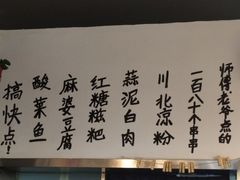 师傅老爷点的
一百八十个串串
川北凉粉
蒜泥白肉
红糖糍粑
麻婆豆腐
酸菜鱼
搞快点！